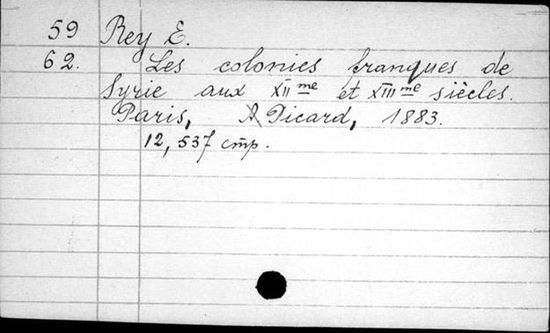 59 Rey E.
62. Les colonies franques de
Syrie aux XII me et XIII me siècles.
Paris, A Picard, 1883.
12, 537 стр.